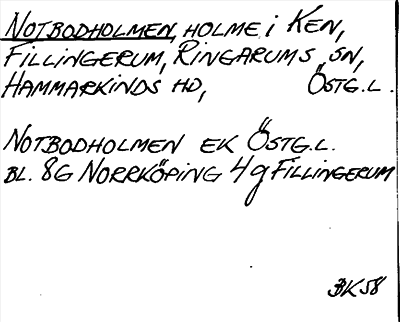 NOTBODHOLMEN, HOLME i KEN,
FILLINGERUM, RINGARUMS SN,
HAMMARKINDS HD, ÖSTG.L.
NOTBODHOLMEN EK ÖSTG.L.
BL. 8G NORRKÖPING 4g FILLINGERUM
BK58